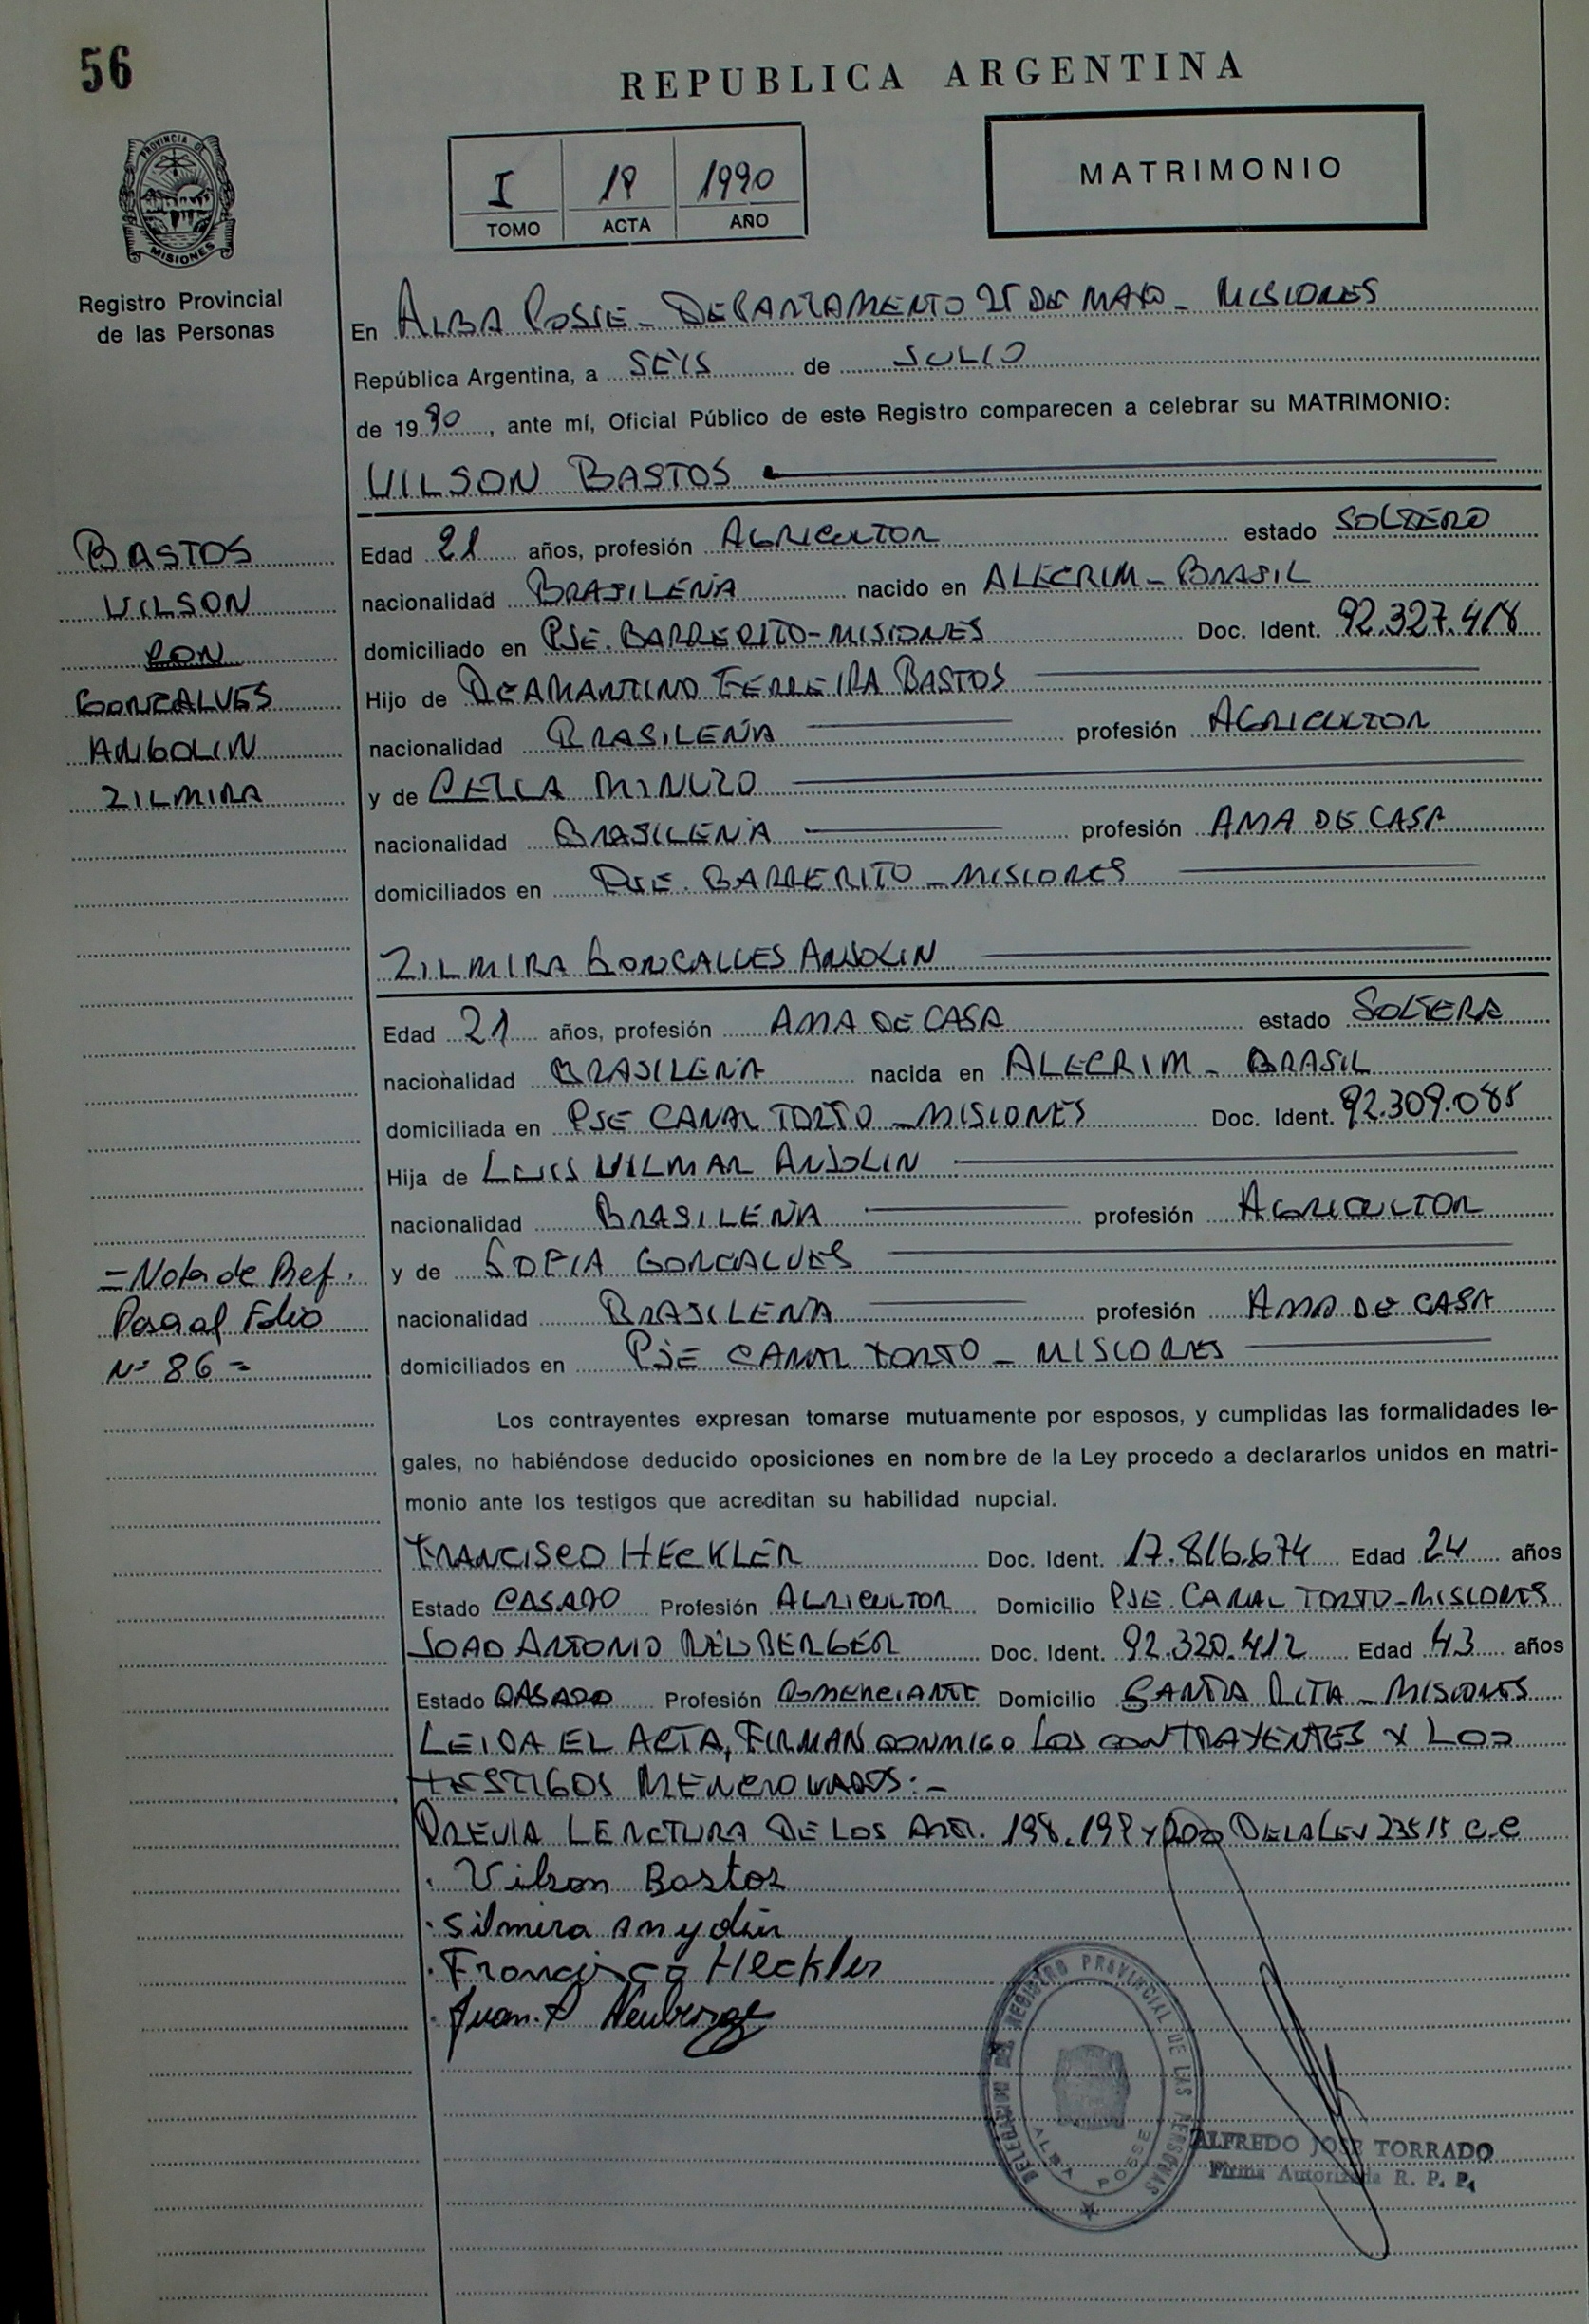 56
REPUBLICA ARGENTINA
PROVINCIA DE
MISIONES
Registro Provincial
de las Personas
I 19 1990
TOMO ACTA AÑO
MATRIMONIO
En ALBA POSSE - DEPARTAMENTO 25 DE MAYO - MISIONES
República Argentina, a SEIS de JULIO
de 1990, ante mí, Oficial Público de este Registro comparecen a celebrar su MATRIMONIO:
VILSON BASTOS
BASTOS
VILSON
CON
GONCALVES
ANGOLIN
ZILMIRA
Edad 21 años, profesión AGRICULTOR estado SOLTERO
nacionalidad BRASILEÑA nacido en ALECRIM - BRASIL
domiciliado en PJE. BARRERITO - MISIONES Doc. Ident. 92.327.418
Hijo de DEAMANTINO FERREIRA BASTOS
nacionalidad BRASILEÑA profesión AGRICULTOR
y de CELIA
nacionalidad BRASILEÑA profesión AMA DE CASA
domiciliados en PJE. BARRERITO - MISIONES
ZILMIRA GONCALVES ANJOLIN
Edad 21 años, profesión AMA DE CASA estado SOLTERA
nacionalidad BRASILEÑA nacida en ALECRIM - BRASIL
domiciliada en PJE CANAL TORTO - MISIONES Doc. Ident. 92.309.088
Hija de LUIS VILMAR ANJOLIN
nacionalidad BRASILEÑA profesión AGRICULTOR
y de SOFIA GONCALVES
nacionalidad BRASILEÑA profesión AMA DE CASA
domiciliados en PJE CANAL TORTO - MISIONES
= Nota de Ref.
Pasa al Folio
Nº 86 =
Los contrayentes expresan tomarse mutuamente por esposos, y cumplidas las formalidades le-
gales, no habiéndose deducido oposiciones en nombre de la Ley procedo a declararlos unidos en matri-
monio ante los testigos que acreditan su habilidad nupcial.
FRANCISCO HECKLER Doc. Ident. 17.816.674 Edad 24 años
Estado CASADO Profesión AGRICULTOR Domicilio PJE. CANAL TORTO - MISIONES
JOAO ANTONIO NEUBERGER Doc. Ident. 92.320.412 Edad 43 años
Estado CASADO Profesión COMERCIANTE Domicilio SANTA RITA - MISIONES
LEIDA EL ACTA, FIRMAN CONMIGO LOS CONTRAYENTES Y LOS
TESTIGOS MENCIONADOS:-
PREVIA LERCTURA DE LOS ART. 198. 199 Y 200 DE LA LEY 23515 C.C
Vilson Bastos
Silmira anydin
Francisco Heckler
Juan. A Neuberge
DELEGACION DEL REGISTRO PROVINCIAL DE LAS PERSONAS
ALBA POSSE
ALFREDO JOSE TORRADO
Firma Autorizada R. P. P.